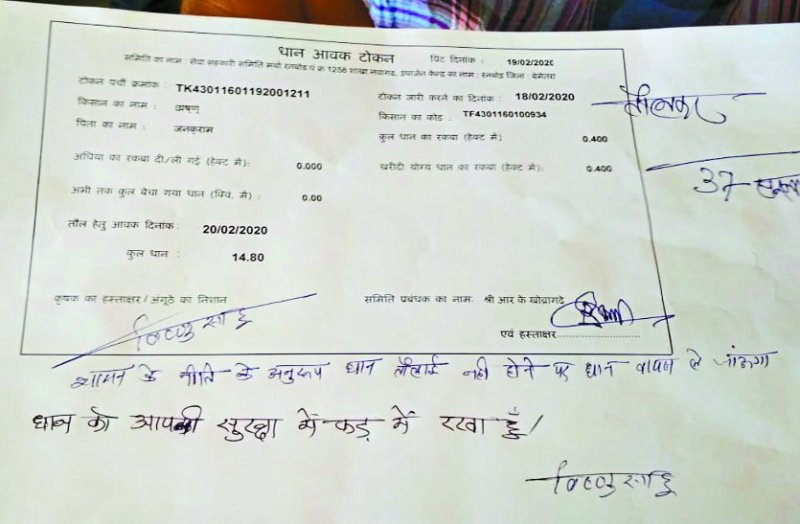 धान आवक टोकन प्रिंट दिनांक : 19/02/2020
समिति का नाम : सेवा सहकारी समिति मर्या रनबोड पं क्र 1258 शाखा नवागढ, उपार्जन केन्द्र का नाम : रनबोड जिला : बेमेतरा
टोकन पर्ची क्रमांक : TK43011601192001211 टोकन जारी करने का दिनांक : 18/02/2020
किसान का नाम : किसान का कोड : TF4301160100934
पिता का नाम : जनकराम कुल धान का रकबा (हेक्ट में) : 0.400
अधिया का रकबा दी/ली गई (हेक्ट में): 0.000 खरीदी योग्य धान का रकबा (हेक्ट में): 0.400
अभी तक कुल बेचा गया धान (क्विं. में) : 0.00
तौल हेतु आवक दिनांक : 20/02/2020
कुल धान : 14.80
कृषक का हस्ताक्षर / अंगूठे का निशान समिति प्रबंधक का नाम: श्री आर के खोब्रागदे
एवं हस्ताक्षर
विष्णु साहू
37
शासन के नीति के अनुरूप धान तौलाई नही होने पर धान वापस ले जाऊंगा
धान को आपकी सुरक्षा में फड़ में रखा हूँ।
विष्णु साहू